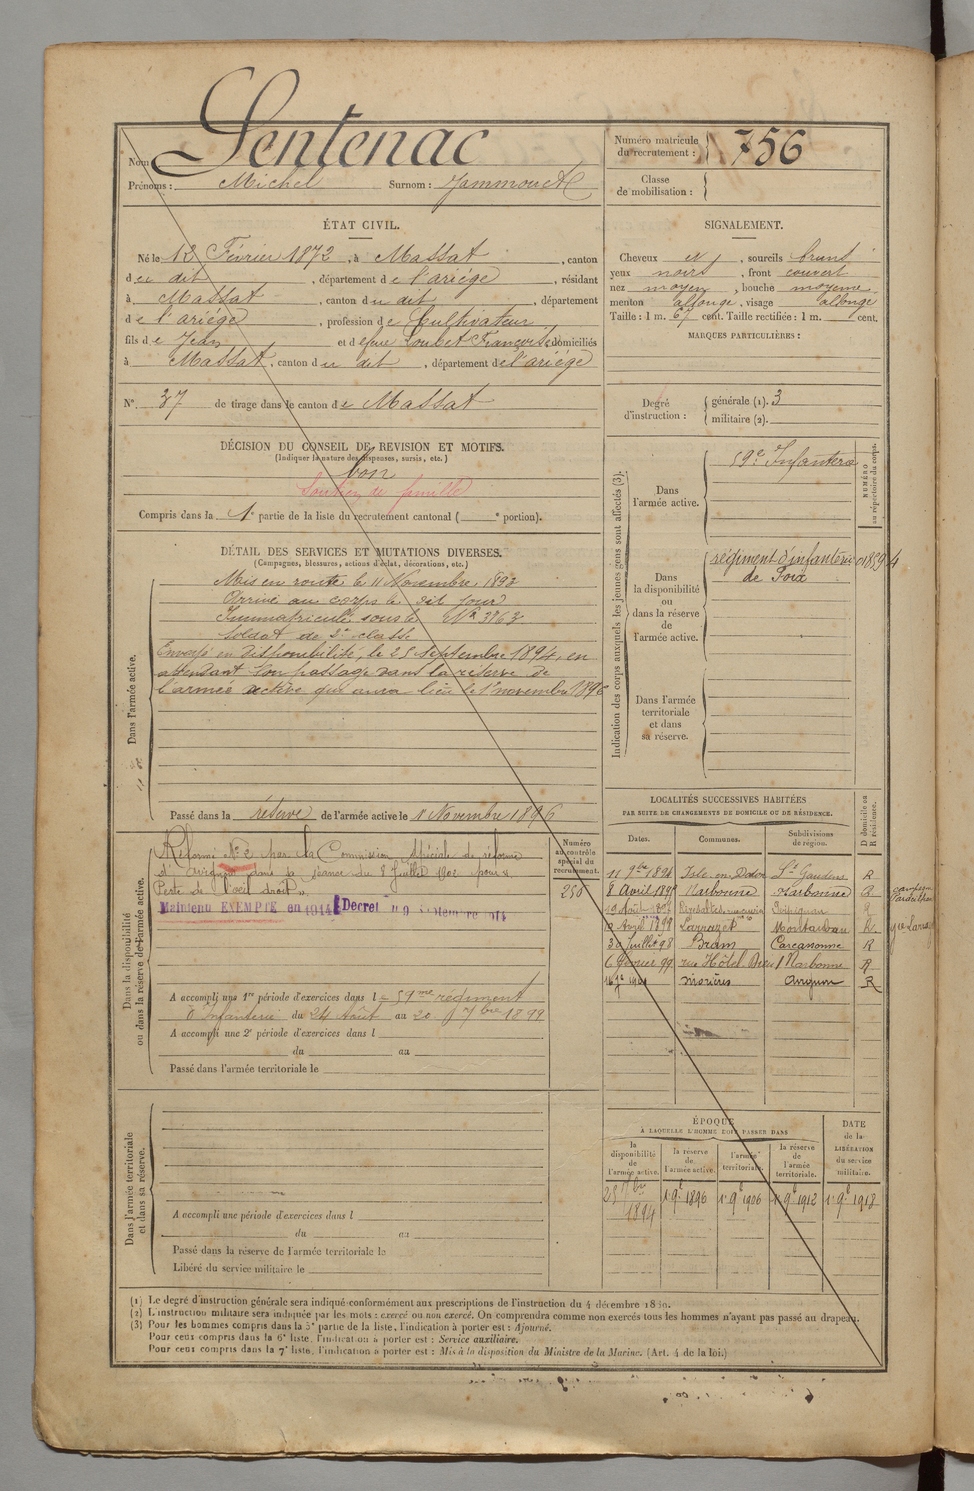 Nom Sentenac
Prénoms : Michel Surnom :
ÉTAT CIVIL.
Né le 12 Février 1872, à Massat, canton
du dit, département de l'ariége, résidant
à Massat, canton du dit, département
de l'ariége, profession de Cultivateur
fils de Jean et de feue Loubet Françoise domiciliés
à Massat, canton du dit, département de l'ariége
N°. 37 de tirage dans le canton de Massat
DÉCISION DU CONSEIL DE REVISION ET MOTIFS.
(Indiquer la nature des dispenses, sursis, etc.)
bon
Soutien de famille
Compris dans la 1e partie de la liste du recrutement cantonal ( e portion).
DÉTAIL DES SERVICES ET MUTATIONS DIVERSES.
(Campagnes, blessures, actions d'éclat, décorations, etc.)
Dans l'armée active.
Mis en route le 11 Novembre 1893
Arrivé au corps le dit jour
Immatriculé sous le N° 3763
Soldat de 2e classe
Envoyé en disponibilité, le 25 Septembre 1894, en
attendant son passage dans la réserve de
l'armée active qui aura lieu le 1er novembre 1896
Passé dans la réserve de l'armée active le 1 Novembre 1896
Dans la disponibilité
ou dans la réserve de l'armée active.
Réformé N° 2 par la Commission spéciale de réforme
d'avignon dans sa séance du 8 Juillet 1902 pour «
Perte de l'oeil droit »
Maintenu EXEMPTÉ en 1914 Décret du 9 Septembre 1914
Numéro
au contrôle
spécial du
recrutement.
250
A accompli une 1re période d'exercices dans le 59me régiment
d'Infanterie du 24 Août au 20 7bre 1899
A accompli une 2e période d'exercices dans l
du au
Passé dans l'armée territoriale le
Dans l'armée territoriale
et dans sa réserve.
A accompli une période d'exercices dans l
du au
Passé dans la réserve de l'armée territoriale le
Libéré du service militaire le
Numéro matricule
du recrutement : 756
Classe
de mobilisation :
SIGNALEMENT.
Cheveux et, sourcils bruns
yeux noirs, front couvert
nez moyen, bouche moyenne
menton allongé, visage allongé
Taille : 1 m. 67 cent. Taille rectifiée : 1 m. cent.
MARQUES PARTICULIÈRES :
Degré
d'instruction :
générale (1). 3
militaire (2).
Indication des corps auxquels les jeunes gens sont affectés (3).
NUMÉRO
au répertoire du corps.
Dans
l'armée active.
59e Infanterie
Dans
la disponibilité
ou
dans la réserve
de
l'armée active.
régiment d'infanterie
de Foix
Dans l'armée
territoriale
et dans
sa réserve.
LOCALITÉS SUCCESSIVES HABITÉES
PAR SUITE DE CHANGEMENTS DE DOMICILE OU DE RÉSIDENCE.
Dates. Communes. Subdivisions
de région. D domicile ou
R résidence.
11 7bre 1896 Isle en Dodon St Gaudens R
8 Avril 1897 Narbonne Narbonne R
19 Août 1897 Perpignan
Avril 1898 Larrazet Montauban R
30 Juillet 98 Bram Carcassonne R
6 février 99 rue Hôtel Dieu 1 Narbonne R
Mézières Avignon R
ÉPOQUE
A LAQUELLE L'HOMME DOIT PASSER DANS
DATE
de la
LIBÉRATION
du service
militaire.
la
disponibilité
de
l'armée active.
la réserve
de
l'armée active.
l'armée
territoriale.
la réserve
de
l'armée
territoriale.
25 7bre
1894 1er 9bre 1896 1er 9bre 1906 1er 9bre 1912 1er 9bre 1918
(1) Le degré d'instruction générale sera indiqué conformément aux prescriptions de l'instruction du 4 décembre 1889.
(2) L'instruction militaire sera indiquée par les mots : exercé ou non exercé. On comprendra comme non exercés tous les hommes n'ayant pas passé au drapeau.
(3) Pour les hommes compris dans la 5e partie de la liste, l'indication à porter est : Ajourné.
Pour ceux compris dans la 6e liste, l'indication à porter est : Service auxiliaire.
Pour ceux compris dans la 7e liste, l'indication à porter est : Mis à la disposition du Ministre de la Marine. (Art. 4 de la loi.)